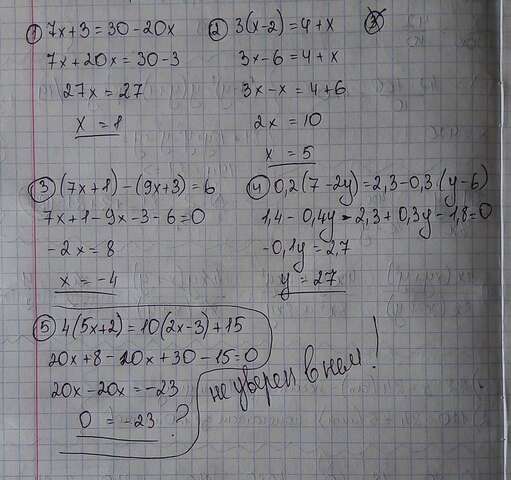 ① 7x+3=30-20x
7x+20x=30-3
27x=27
x=1
② 3(x-2)=4+x
3x-6=4+x
3x-x=4+6
2x=10
x=5
③ (7x+1)-(9x+3)=6
7x+1-9x-3-6=0
-2x=8
x=-4
④ 0,2(7-2y)=2,3-0,3(y-6)
1,4-0,4y-2,3+0,3y-1,8=0
-0,1y=2,7
y=27
⑤ 4(5x+2)=10(2x-3)+15
20x+8-20x+30-15=0
20x-20x=-23
0=-23 ?
не уверен в нем!